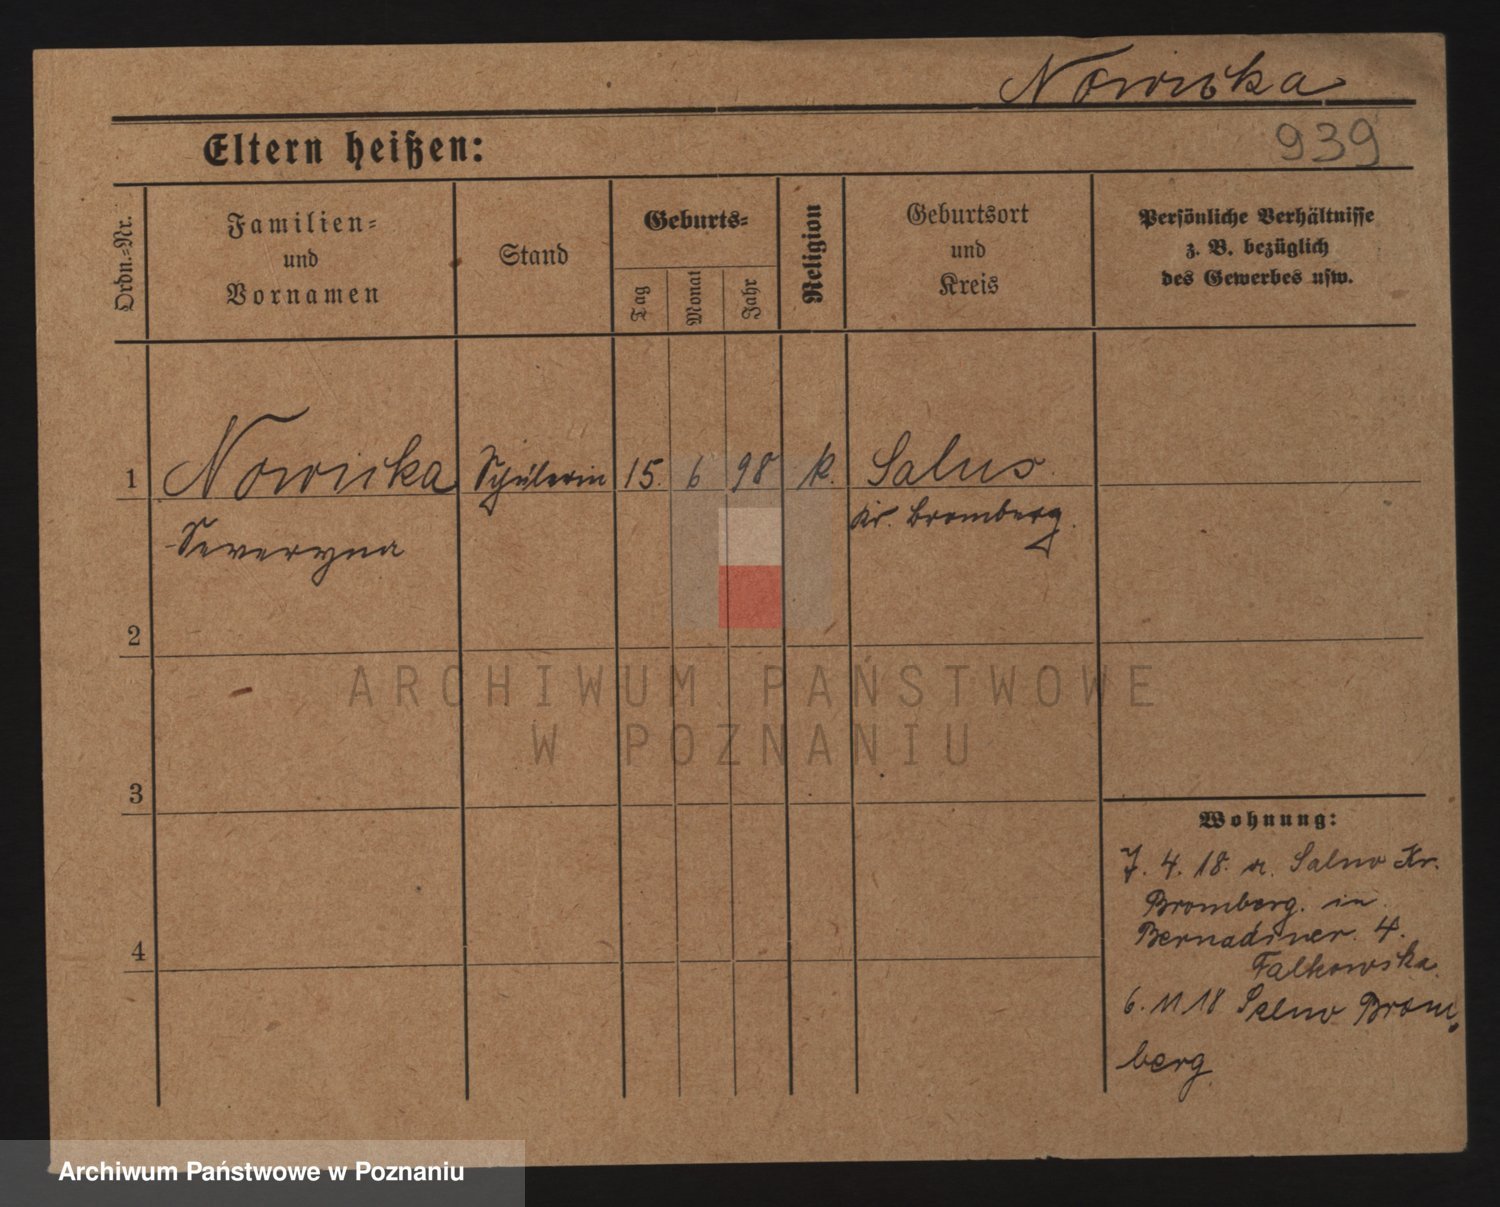 Nowicka
Eltern heißen:
939
Ordn.-Nr.
Familien-
und
Vornamen
Stand
Geburts-
Tag
Monat
Jahr
Religion
Geburtsort
und
Kreis
Persönliche Verhältnisse
z. B. bezüglich
des Gewerbes usw.
1
Nowicka Schülerin 15. 6 98 k. Salno
Severyna
Kr. Bromberg.
2
ARCHIWUM PAŃSTWOWE
W POZNANIU
3
Wohnung:
7. 4. 18. a. Salno Kr.
Bromberg. in
Bernadiner. 4.
Falkowska.
4
6. 11 18 Salno Brom,
berg
Archiwum Państwowe w Poznaniu